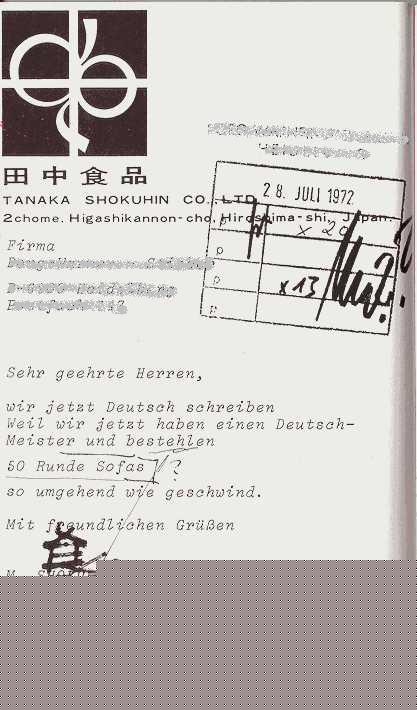 田中食品
TANAKA SHOKUHIN CO.,LTD.
2chome. Higashikannon-cho, Hiroshima-shi, Japan.
28. JULI 1972
x 20
x 13
Firma
Sehr geehrte Herren,
wir jetzt Deutsch schreiben
Weil wir jetzt haben einen Deutsch-
Meister und bestehlen
50 Runde Sofas ?
so umgehend wie geschwind.
Mit freundlichen Grüßen